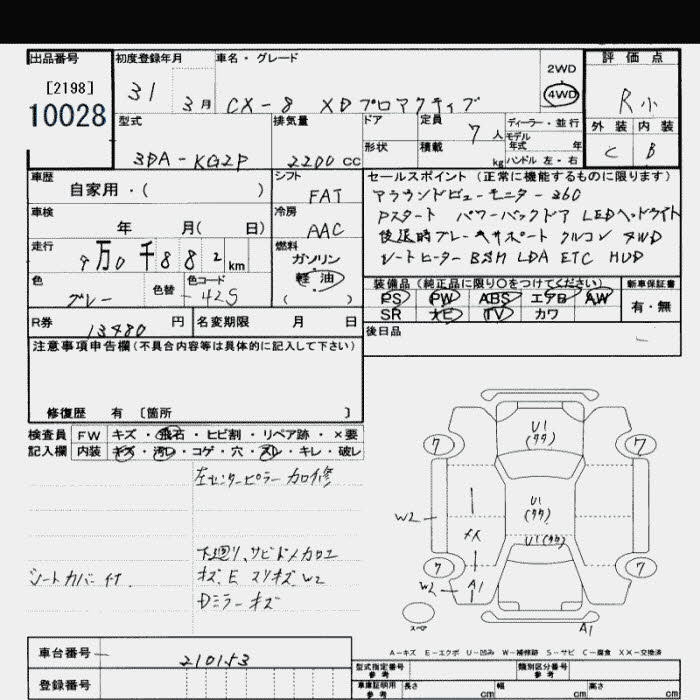 出品番号 初度登録年月 車名・グレード 2WD 評価点
[2198] 31 3月 CX-8 XDプロアクティブ 4WD R小
10028
型式 排気量 ドア 定員 7人 ディーラー・並行 外装 内装
3DA-KG2P 2200cc 形状 積載 kg モデル年式 年 C B
ハンドル 左・右
車歴 シフト セールスポイント(正常に機能するものに限ります)
自家用・( ) FAT アラウンドビューモニター 360
車検 冷房 Pスタート パワーバックドア LEDヘッドライト
年 月( 日) AAC 後退時ブレーキサポート クルコン 4WD
走行 燃料 シートヒーター BSM LDA ETC HUD
9万0千882km ガソリン
軽油
( )
色 色替 色コード
グレー 42S
装備品(純正品に限り○をつけてください) 新車保証書
PS PW ABS エアB AW 有・無
SR ナビ TV カワ
R券 13480円 名変期限 月 日 後日品
注意事項申告欄(不具合内容等は具体的に記入して下さい)
修復歴 有 〔箇所 〕
検査員 FW キズ・飛石・ヒビ割・リペア跡・×要
記入欄 内装 キズ・汚レ・コゲ・穴・スレ・キレ・破レ
左センターピラー カロ修
下廻り、サビ
シートカバー付. キズ、E スリキズ W2
Dミラーキズ
U1
7 7
U1
W2
U1
メス
7 7
W2 A1
スペア A1
A-キズ E-エクボ U-凹み W-補修跡 S-サビ C-腐食 XX-交換済
車台番号 210153
登録番号
型式指定番号 参考 類別区分番号 参考
車庫証明用 参考 長さ cm 幅 cm 高さ cm